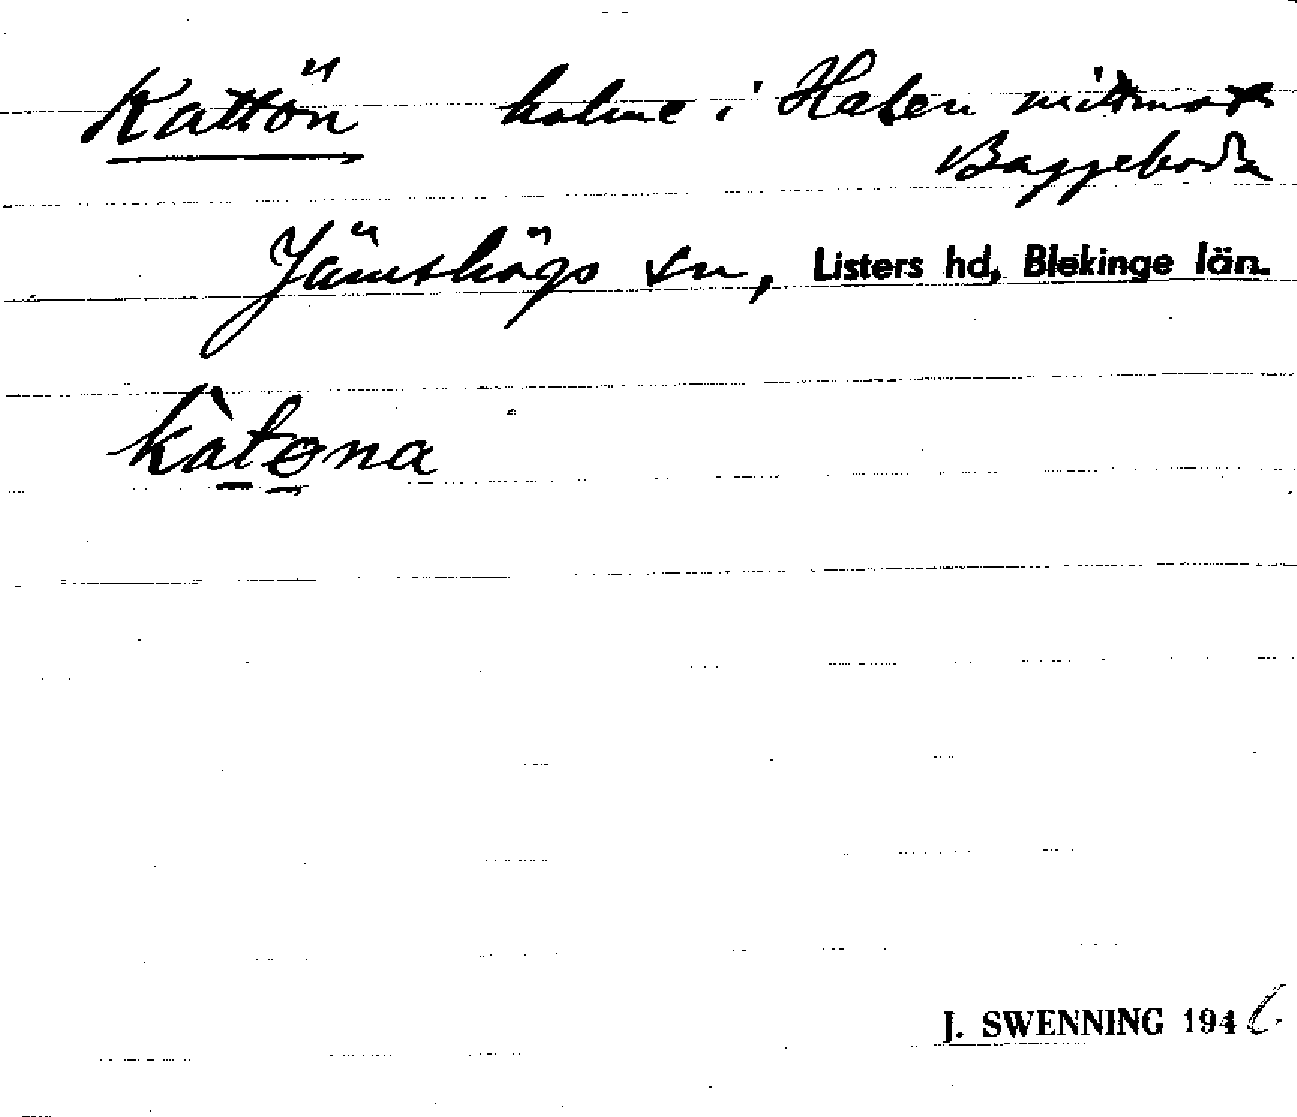 Kattön holme i Halen mittmot
Baggeboda
Jämshögs sn, Listers hd, Blekinge län.
kàtɵna
J. SWENNING 1946